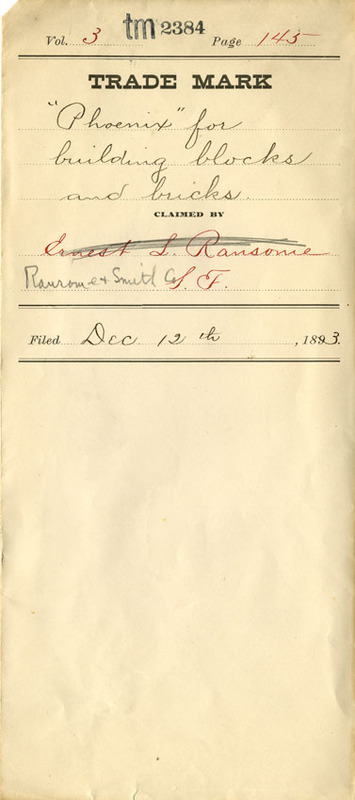 Vol. 3 tm 2384 Page 145
TRADE MARK
"Phoenix" for
building blocks
and bricks.
CLAIMED BY
Ernest L. Ransome
Ransome & Smith Co S. F.
Filed Dec 12th, 1893.